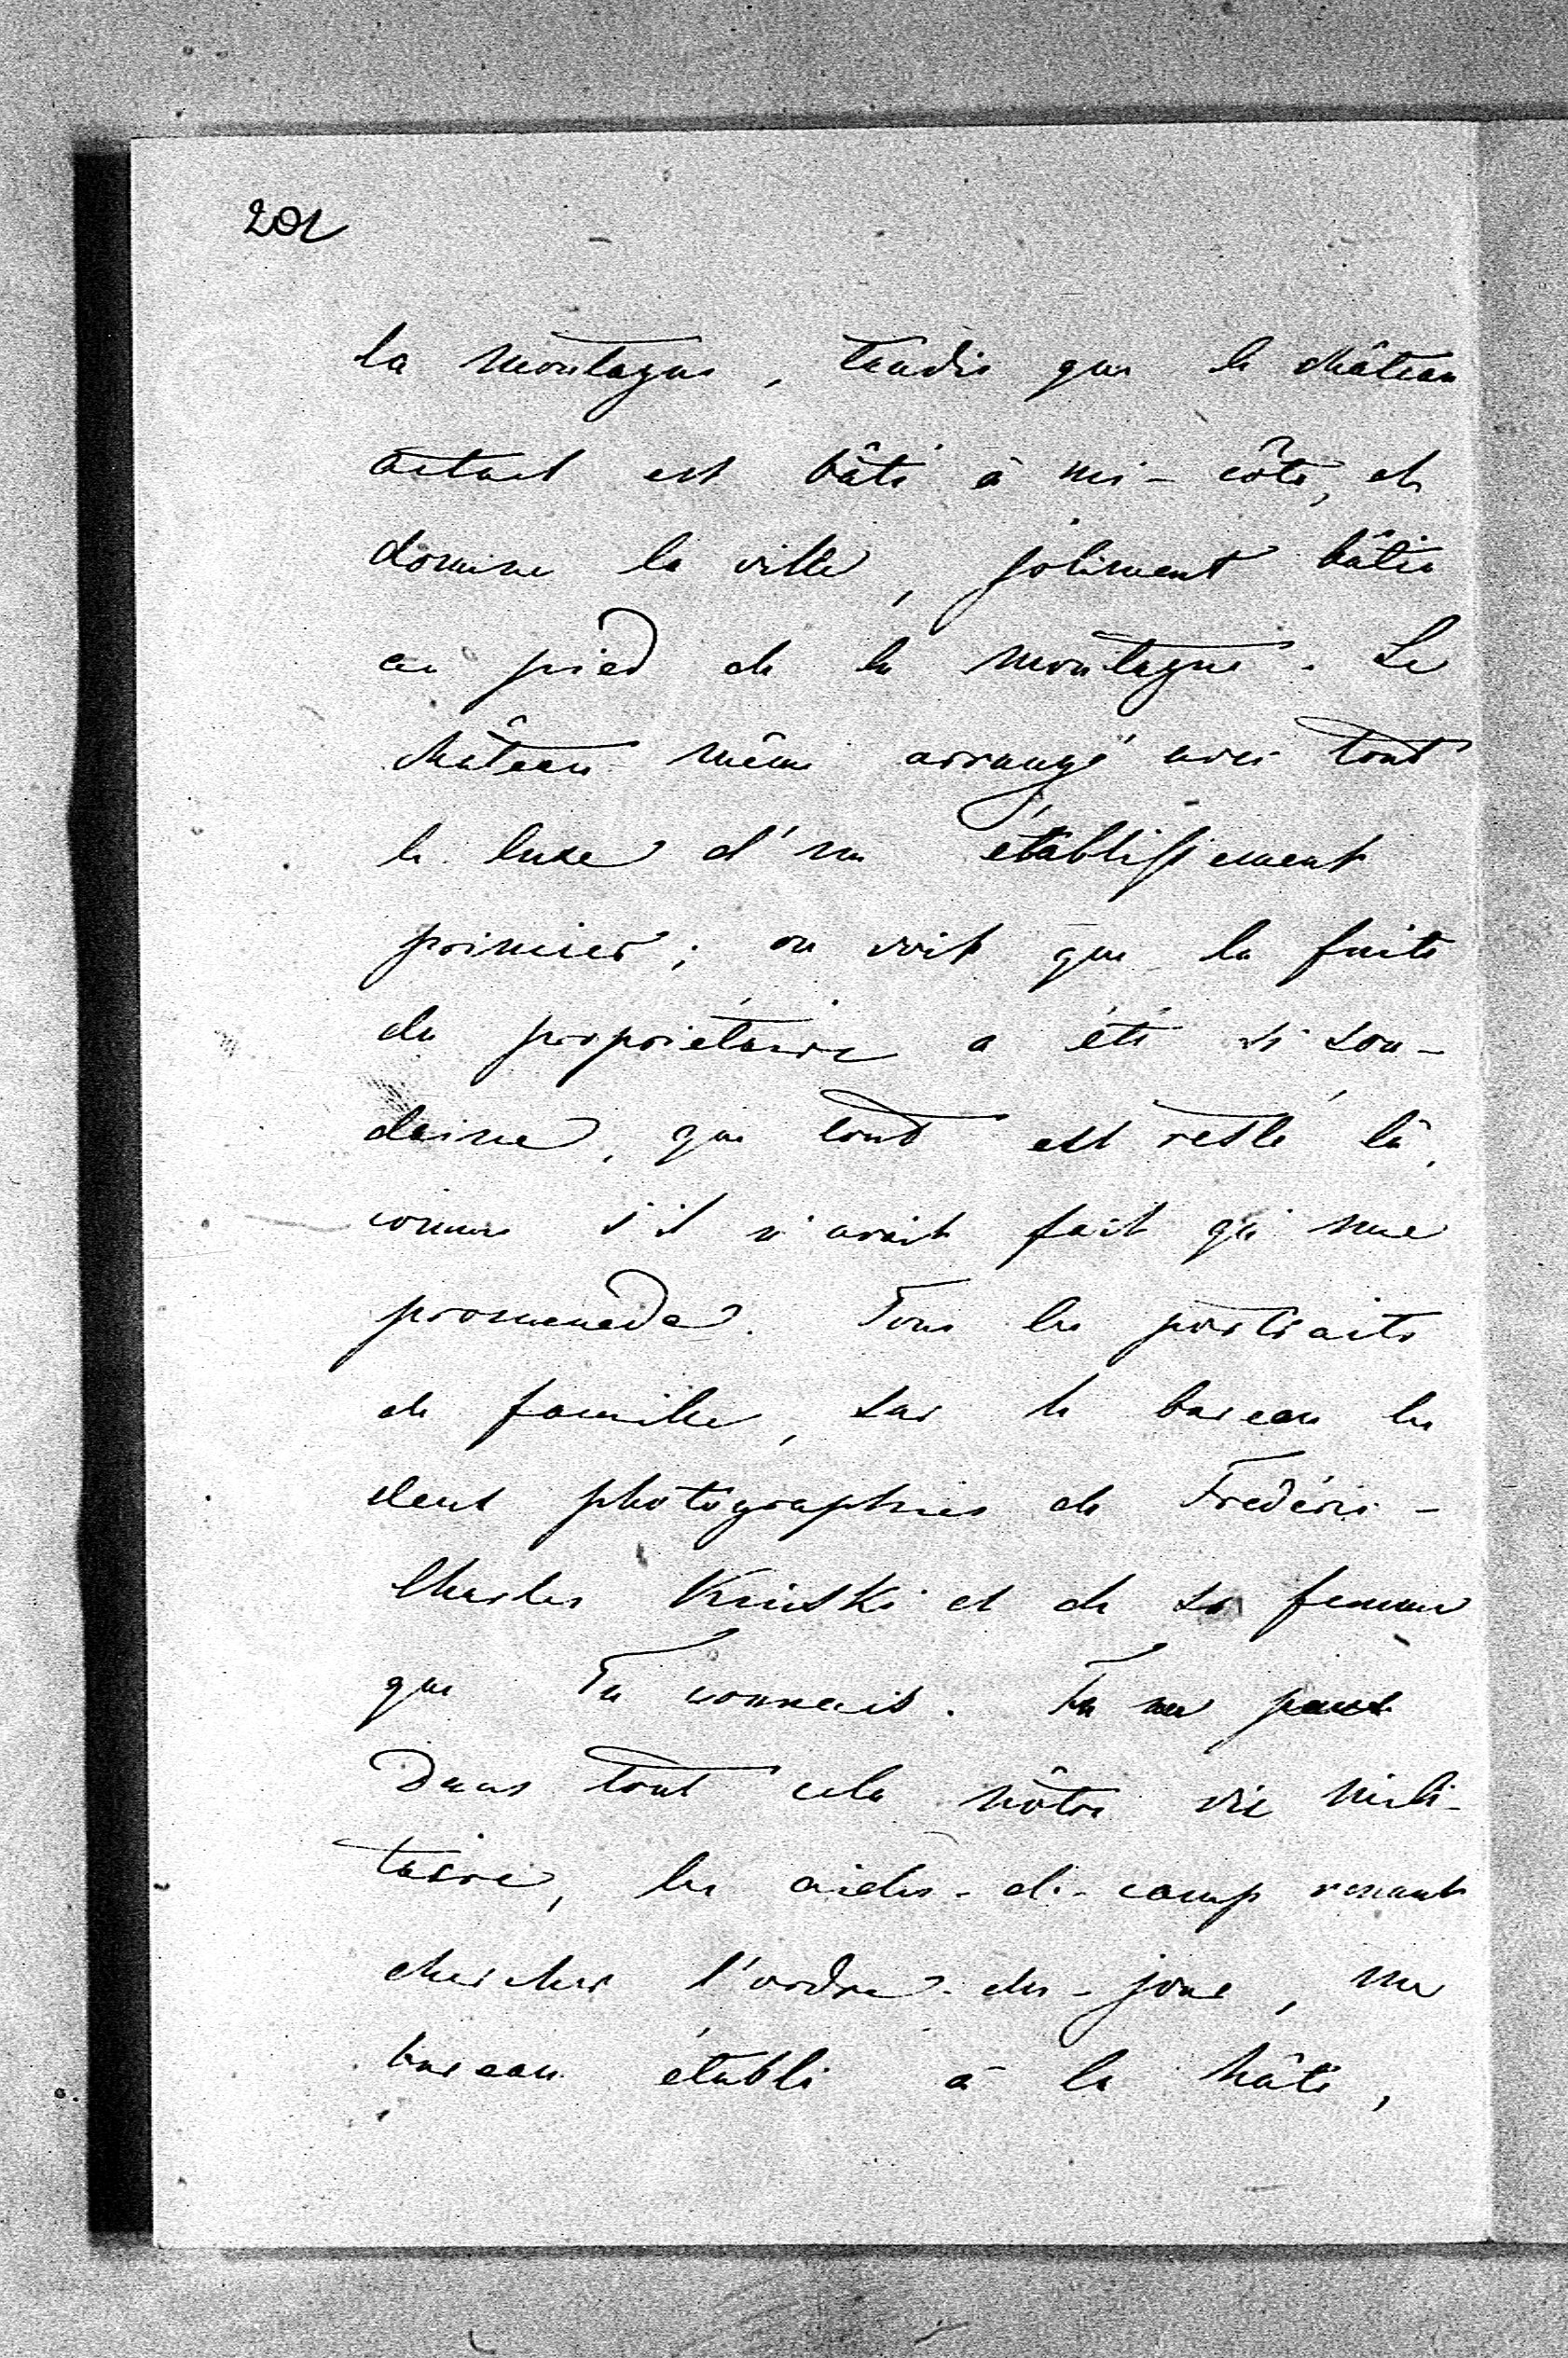 201
la montagne, tandis que le château
actuel est bâti à mi-côte, et
domine la ville, joliment bâtie
au pied de la montagne. Le
château même arrangé avec tout
le luxe d'un établissement
princier; on voit que la fuite
du propriétaire a été si sou-
daine, que tout est resté là,
comme s'il n'avait fait qu'une
promenade. Tous les portraits
de famille, sur le bureau les
deux photographies de Frédéric-
Charles Kinski et de sa femme
que Tu connais.
Dans tout cela nôtre vie mili-
taire, les aides-de-camp venant
chercher l'ordre-du-jour, un
bureau établi à la hâte,